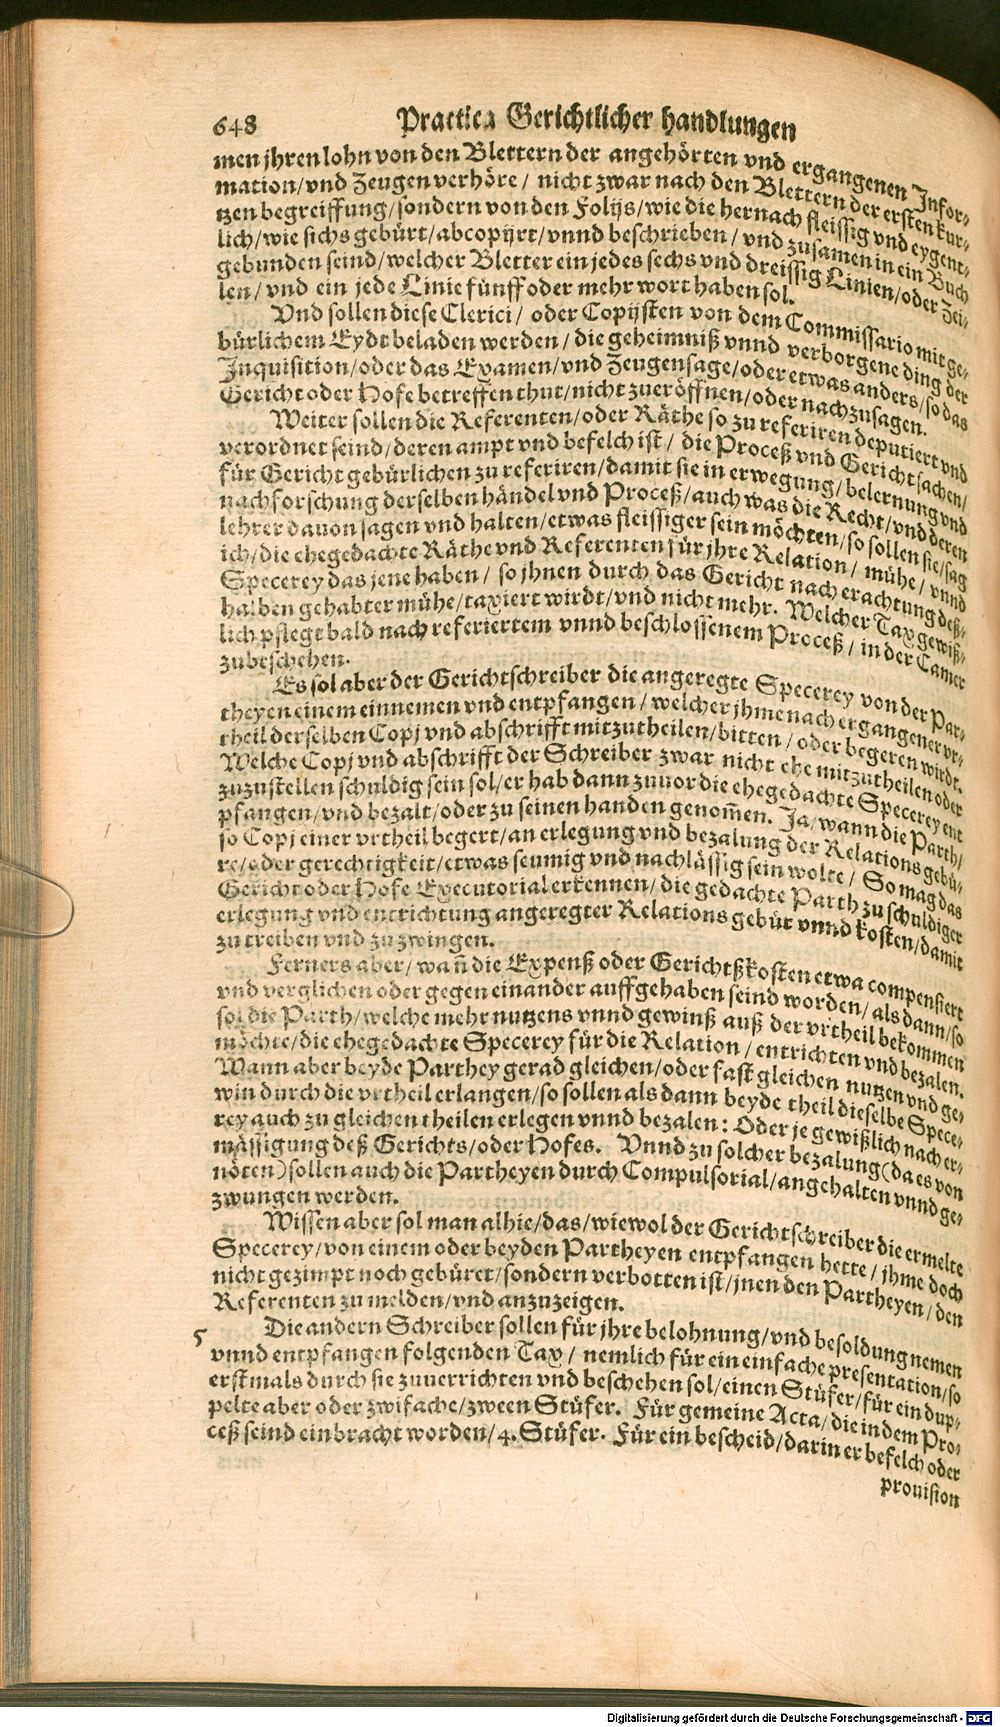 648 Practica Gerichtlicher handlungen
men jhren lohn von den Blettern der angehörten vnd ergangenen Infor-
mation/vnd Zeugen verhöre/ nicht zwar nach den Blettern der ersten kur-
tzen begreiffung/sondern von den Folijs/wie die hernach fleissig vnd eygent-
lich/wie sichs gebürt/abcopijrt/vnnd beschrieben/ vnd zusamen in ein Buch
gebunden seind/welcher Bletter ein jedes sechs vnd dreissig Linien/oder Zei-
len/ vnd ein jede Linie fünff oder mehr wort haben sol.
Vnd sollen diese Clerici/ oder Copijsten von dem Commissario mit ge-
bürlichem Eydt beladen werden/ die geheimniß vnnd verborgene ding der
Inquisition/oder das Examen/vnd Zeugensage/oder etwas anders/so das
Gericht oder Hofe betreffen thut/nicht zueröffnen/oder nachzusagen.
Weiter sollen die Referenten/oder Räthe so zu referiren deputiert vnd
verordnet seind/deren ampt vnd befelch ist/ die Proceß vnd Gerichtsachen/
für Gericht gebürlichen zu referiren/damit sie in erwegung/belernung vnd
nachforschung derselben händel vnd Proceß/auch was die Recht/vnd deren
lehrer dauon sagen vnd halten/etwas fleissiger sein möchten/so sollen sie/sag
ich/die ehegedachte Räthe vnd Referenten für jhre Relation/ mühe/ vnnd
Specerey das jene haben/ so jhnen durch das Gericht nach erachtung deß-
halben gehabter mühe/taxiert wirdt/vnd nicht mehr. Welcher Tax gewiß-
lich pflegt bald nach referiertem vnnd beschlossenem Proceß/ in der Camer
zubeschehen.
Es sol aber der Gerichtschreiber die angeregte Specerey von der Par-
theyen einem einnemen vnd entpfangen/ welcher jhme nach ergangener vr-
theil derselben Copj vnd abschrifft mitzutheilen/bitten/ oder begeren wirdt.
Welche Copj vnd abschrifft der Schreiber zwar nicht ehe mitzutheilen oder
zuzustellen schuldig sein sol/er hab dann zuuor die ehegedachte Specerey ent
pfangen/vnd bezalt/oder zu seinen handen genom̃en. Ja/wann die Parth/
so Copj einer vrtheil begert/an erlegung vnd bezalung der Relations gebü-
re/oder gerechtigkeit/etwas seumig vnd nachlässig sein wolte/ So mag das
Gericht oder Hofe Executorial erkennen/die gedachte Parth zu schuldiger
erlegung vnd entrichtung angeregter Relations gebür vnnd kosten/damit
zu treiben vnd zu zwingen.
Ferners aber/wañ die Expenß oder Gerichtßkosten etwa compensiert
vnd verglichen oder gegen einander auffgehaben seind worden/als dann/so
sol die Parth/welche mehr nutzens vnnd gewinß auß der vrtheil bekommen
möchte/die ehegedachte Specerey für die Relation/ entrichten vnd bezalen.
Wann aber beyde Parthey gerad gleichen/oder fast gleichen nutzen vnd ge-
win durch die vrtheil erlangen/so sollen als dann beyde theil dieselbe Spece-
rey auch zu gleichen theilen erlegen vnnd bezalen: Oder je gewißlich nach er-
mässigung deß Gerichts/oder Hofes. Vnnd zu solcher bezalung (da es von
nöten) sollen auch die Partheyen durch Compulsorial/angehalten vnnd ge-
zwungen werden.
Wissen aber sol man alhie/das/wiewol der Gerichtschreiber die ermelte
Specerey/von einem oder beyden Partheyen entpfangen hette/ jhme doch
nicht gezimpt noch gebüret/sondern verbotten ist/jnen den Partheyen/ den
Referenten zu melden/vnd anzuzeigen.
5 Die andern Schreiber sollen für jhre belohnung/vnd besoldung nemen
vnnd entpfangen folgenden Tax/ nemlich für ein einfache presentation/so
erstmals durch sie zuuerrichten vnd beschehen sol/einen Stüfer/für ein dup-
pelte aber oder zwifache/zween Stüfer. Für gemeine Acta/die in dem Pro-
ceß seind einbracht worden/4. Stüfer. Für ein bescheid/darin er befelch oder
prouision
Digitalisierung gefördert durch die Deutsche Forschungsgemeinschaft - DFG